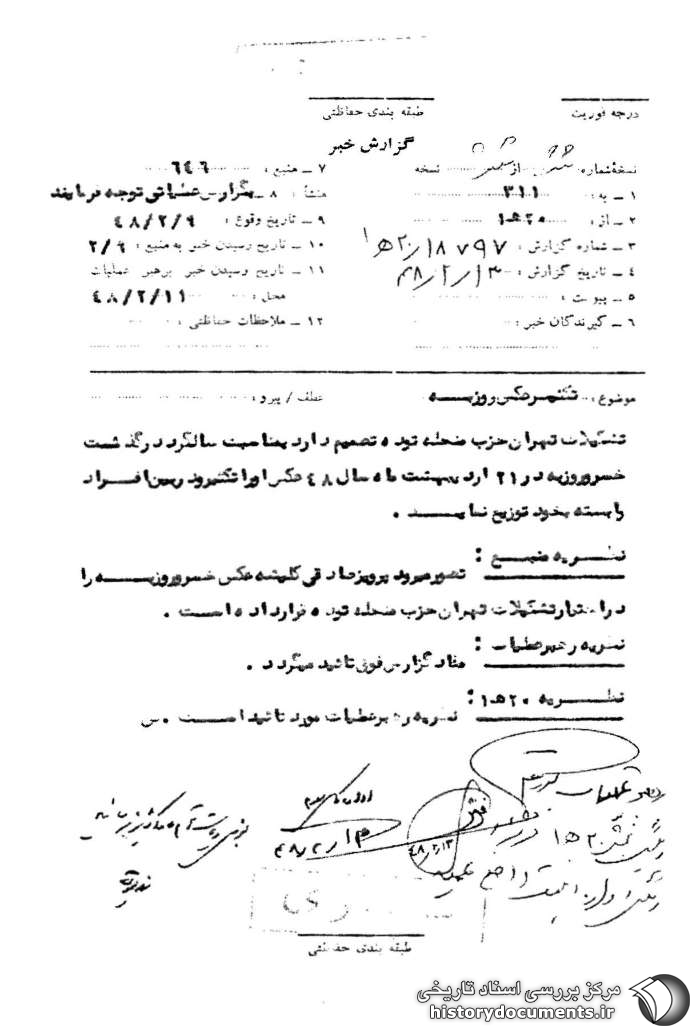 درجه فوریت
طبقه بندی حفاظتی
گزارش خبر
نسخهٔ شماره از نسخه
۱ ـ به: ۳۱۱
۲ ـ از: ۲۰ﻫ۱
۳ ـ شماره گزارش: ۱۸۷۹۷/۲۰ﻫ۱
۴ ـ تاریخ گزارش: ۴۸/۲/۱۳
۵ ـ پیوست:
۶ ـ گیرندگان خبر:
۷ ـ منبع: ۶۴۶
۸ ـ منشأ: بگزارش عملیاتی توجه فرمایند
۹ ـ تاریخ وقوع: ۴۸/۲/۹
۱۰ ـ تاریخ رسیدن خبر به منبع: ۲/۹
۱۱ ـ تاریخ رسیدن خبر برهبر عملیات
محل: ۴۸/۲/۱۱
۱۲ ـ ملاحظات حفاظتی:
موضوع: تکثیر عکس روزبه
عطف / پیرو:
تشکیلات تهران حزب منحله توده تصمیم دارد بمناسبت سالگرد درگذشت
خسرو روزبه در ۲۱ اردیبهشت ماه سال ۴۸ عکس او را تکثیر و در بین افراد
وابسته بخود توزیع نماید .
نظریه منبع :
تصور میرود پرویز صادقی کلیشه عکس خسرو روزبه را
در اختیار تشکیلات تهران حزب منحله توده قرار داده است .
نظریه رهبر عملیات :
مفاد گزارش فوق تائید میگردد .
نظریه ۲۰ﻫ۱ :
نظریه رهبر عملیات مورد تائید است . س
۴۸/۲/۱۳
۴۸/۲/۱۳
طبقه بندی حفاظتی
مرکز بررسی اسناد تاریخی
historydocuments.ir